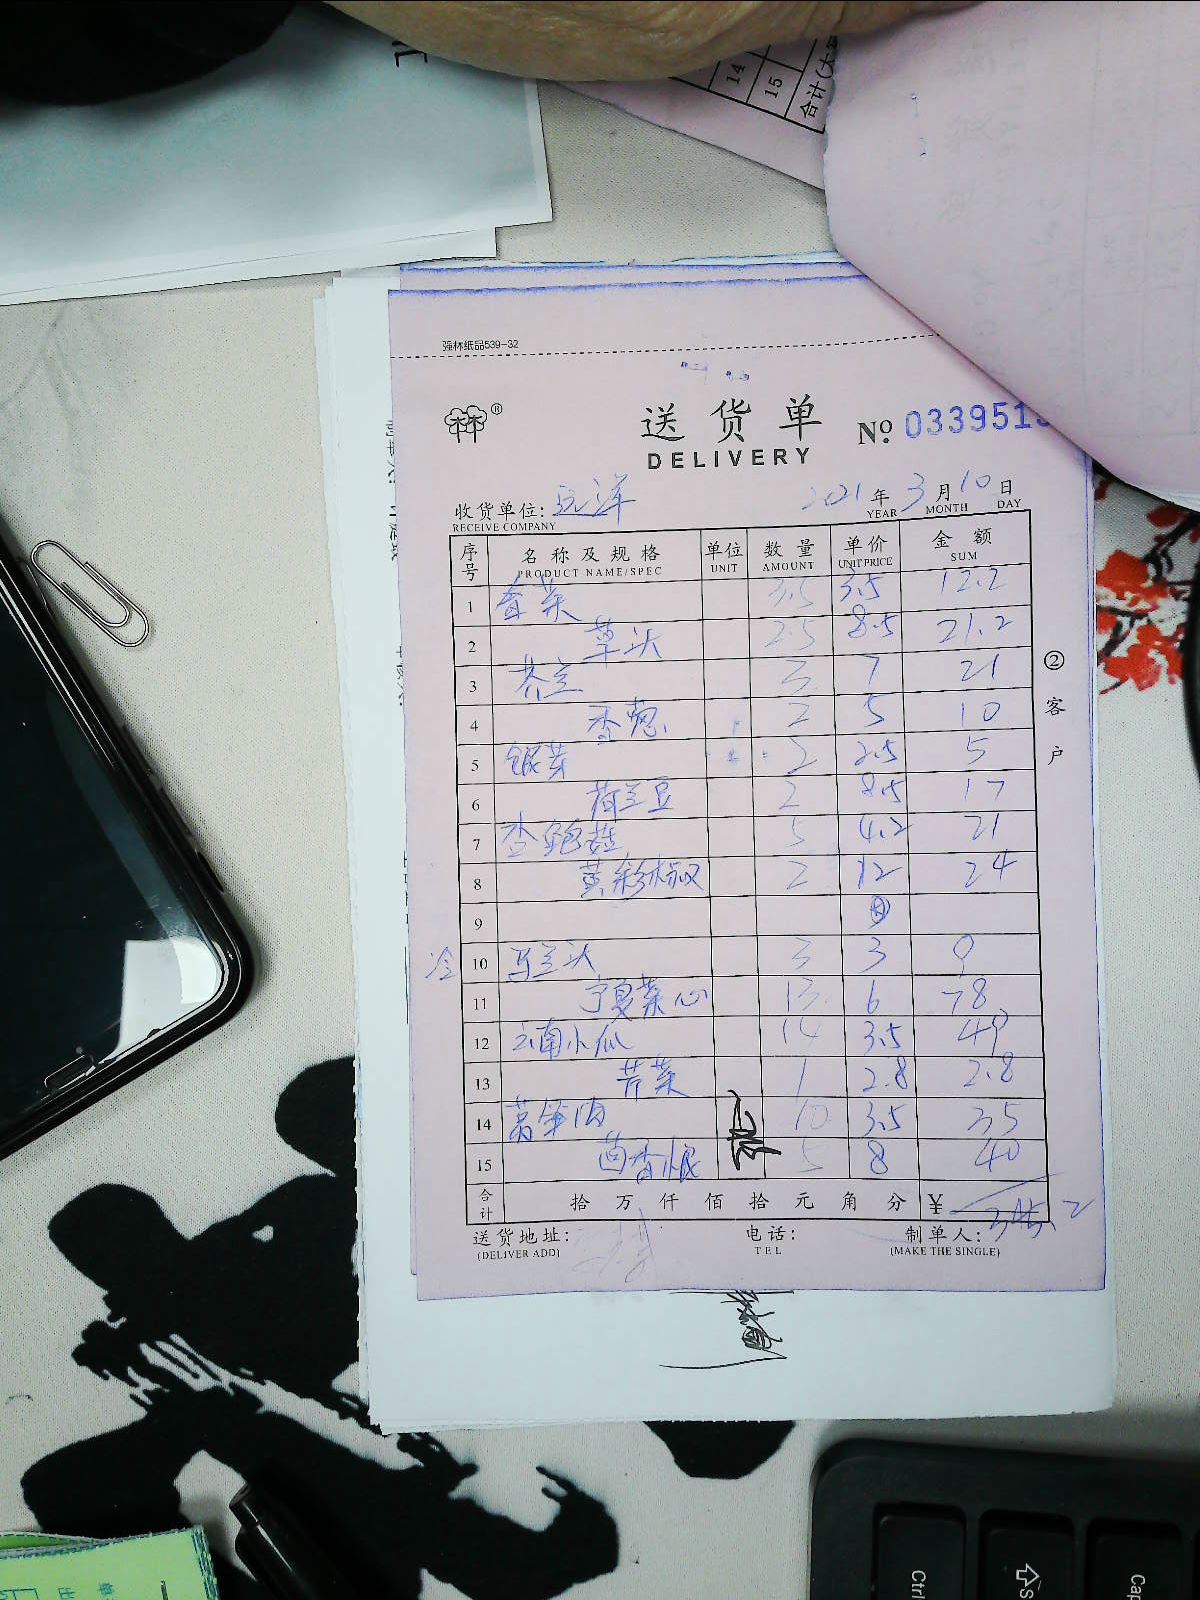 14
15
合计(大
强林纸品539-32
®
送货单
No. 033951
DELIVERY
收货单位: 远洋 2021年3月10日
RECEIVE COMPANY YEAR MONTH DAY
序号 名称及规格 单位 数量 单价 金额
PRODUCT NAME/SPEC UNIT AMOUNT UNIT PRICE SUM
1 3.5 3.5 12.2
2 草头 2.5 8.5 21.2
3 芥兰 3 7 21
4 香葱 2 5 10
5 银芽 2 2.5 5
6 荷兰豆 2 8.5 17
7 杏鲍菇 5 4.2 21
8 黄彩椒 2 12 24
9
冷 10 马兰头 3 3 9
11 宁夏菜心 13 6 78
12 云南小瓜 14 3.5 49
13 芹菜 1 2.8 2.8
14 10 3.5 35
15 茴香根 5 8 40
合计 拾万仟佰拾元角分 ¥ 345.2
送货地址: 电话: 制单人:
(DELIVER ADD) TEL (MAKE THE SINGLE)
②客户
Ctrl